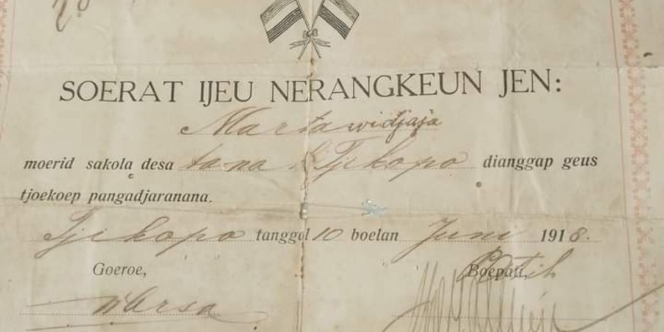 SOERAT IJEU NERANGKEUN JEN:
Martawidjaja
moerid sakola desa tana Tjikopo dianggap geus
tjoekoep pangadjaranana.
Tjikopo tanggal 10 boelan Juni 1918.
Goeroe, Boepati,